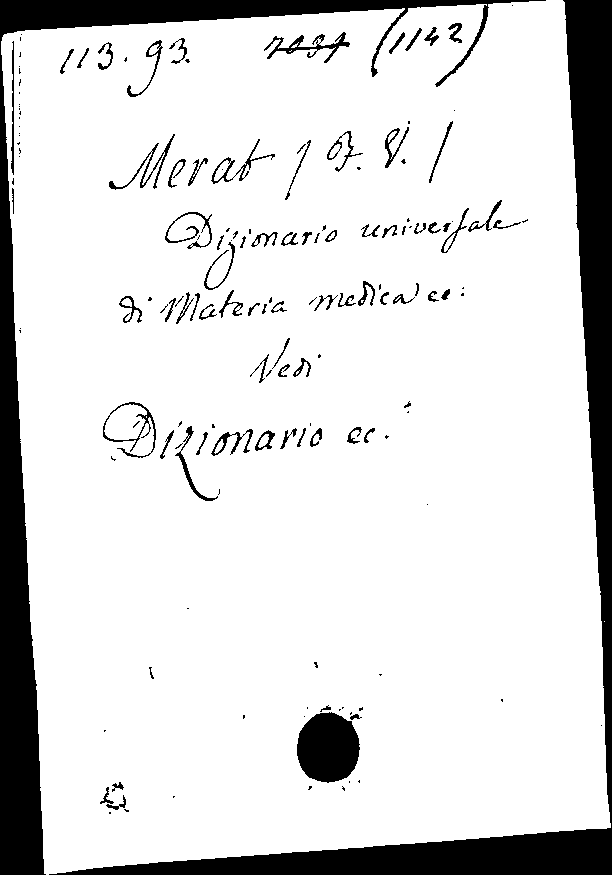 113.93. 7037 (1142)
Merat / F. V. /
Dizionario universale
di Materia medica ec:
Vedi
Dizionario ec.